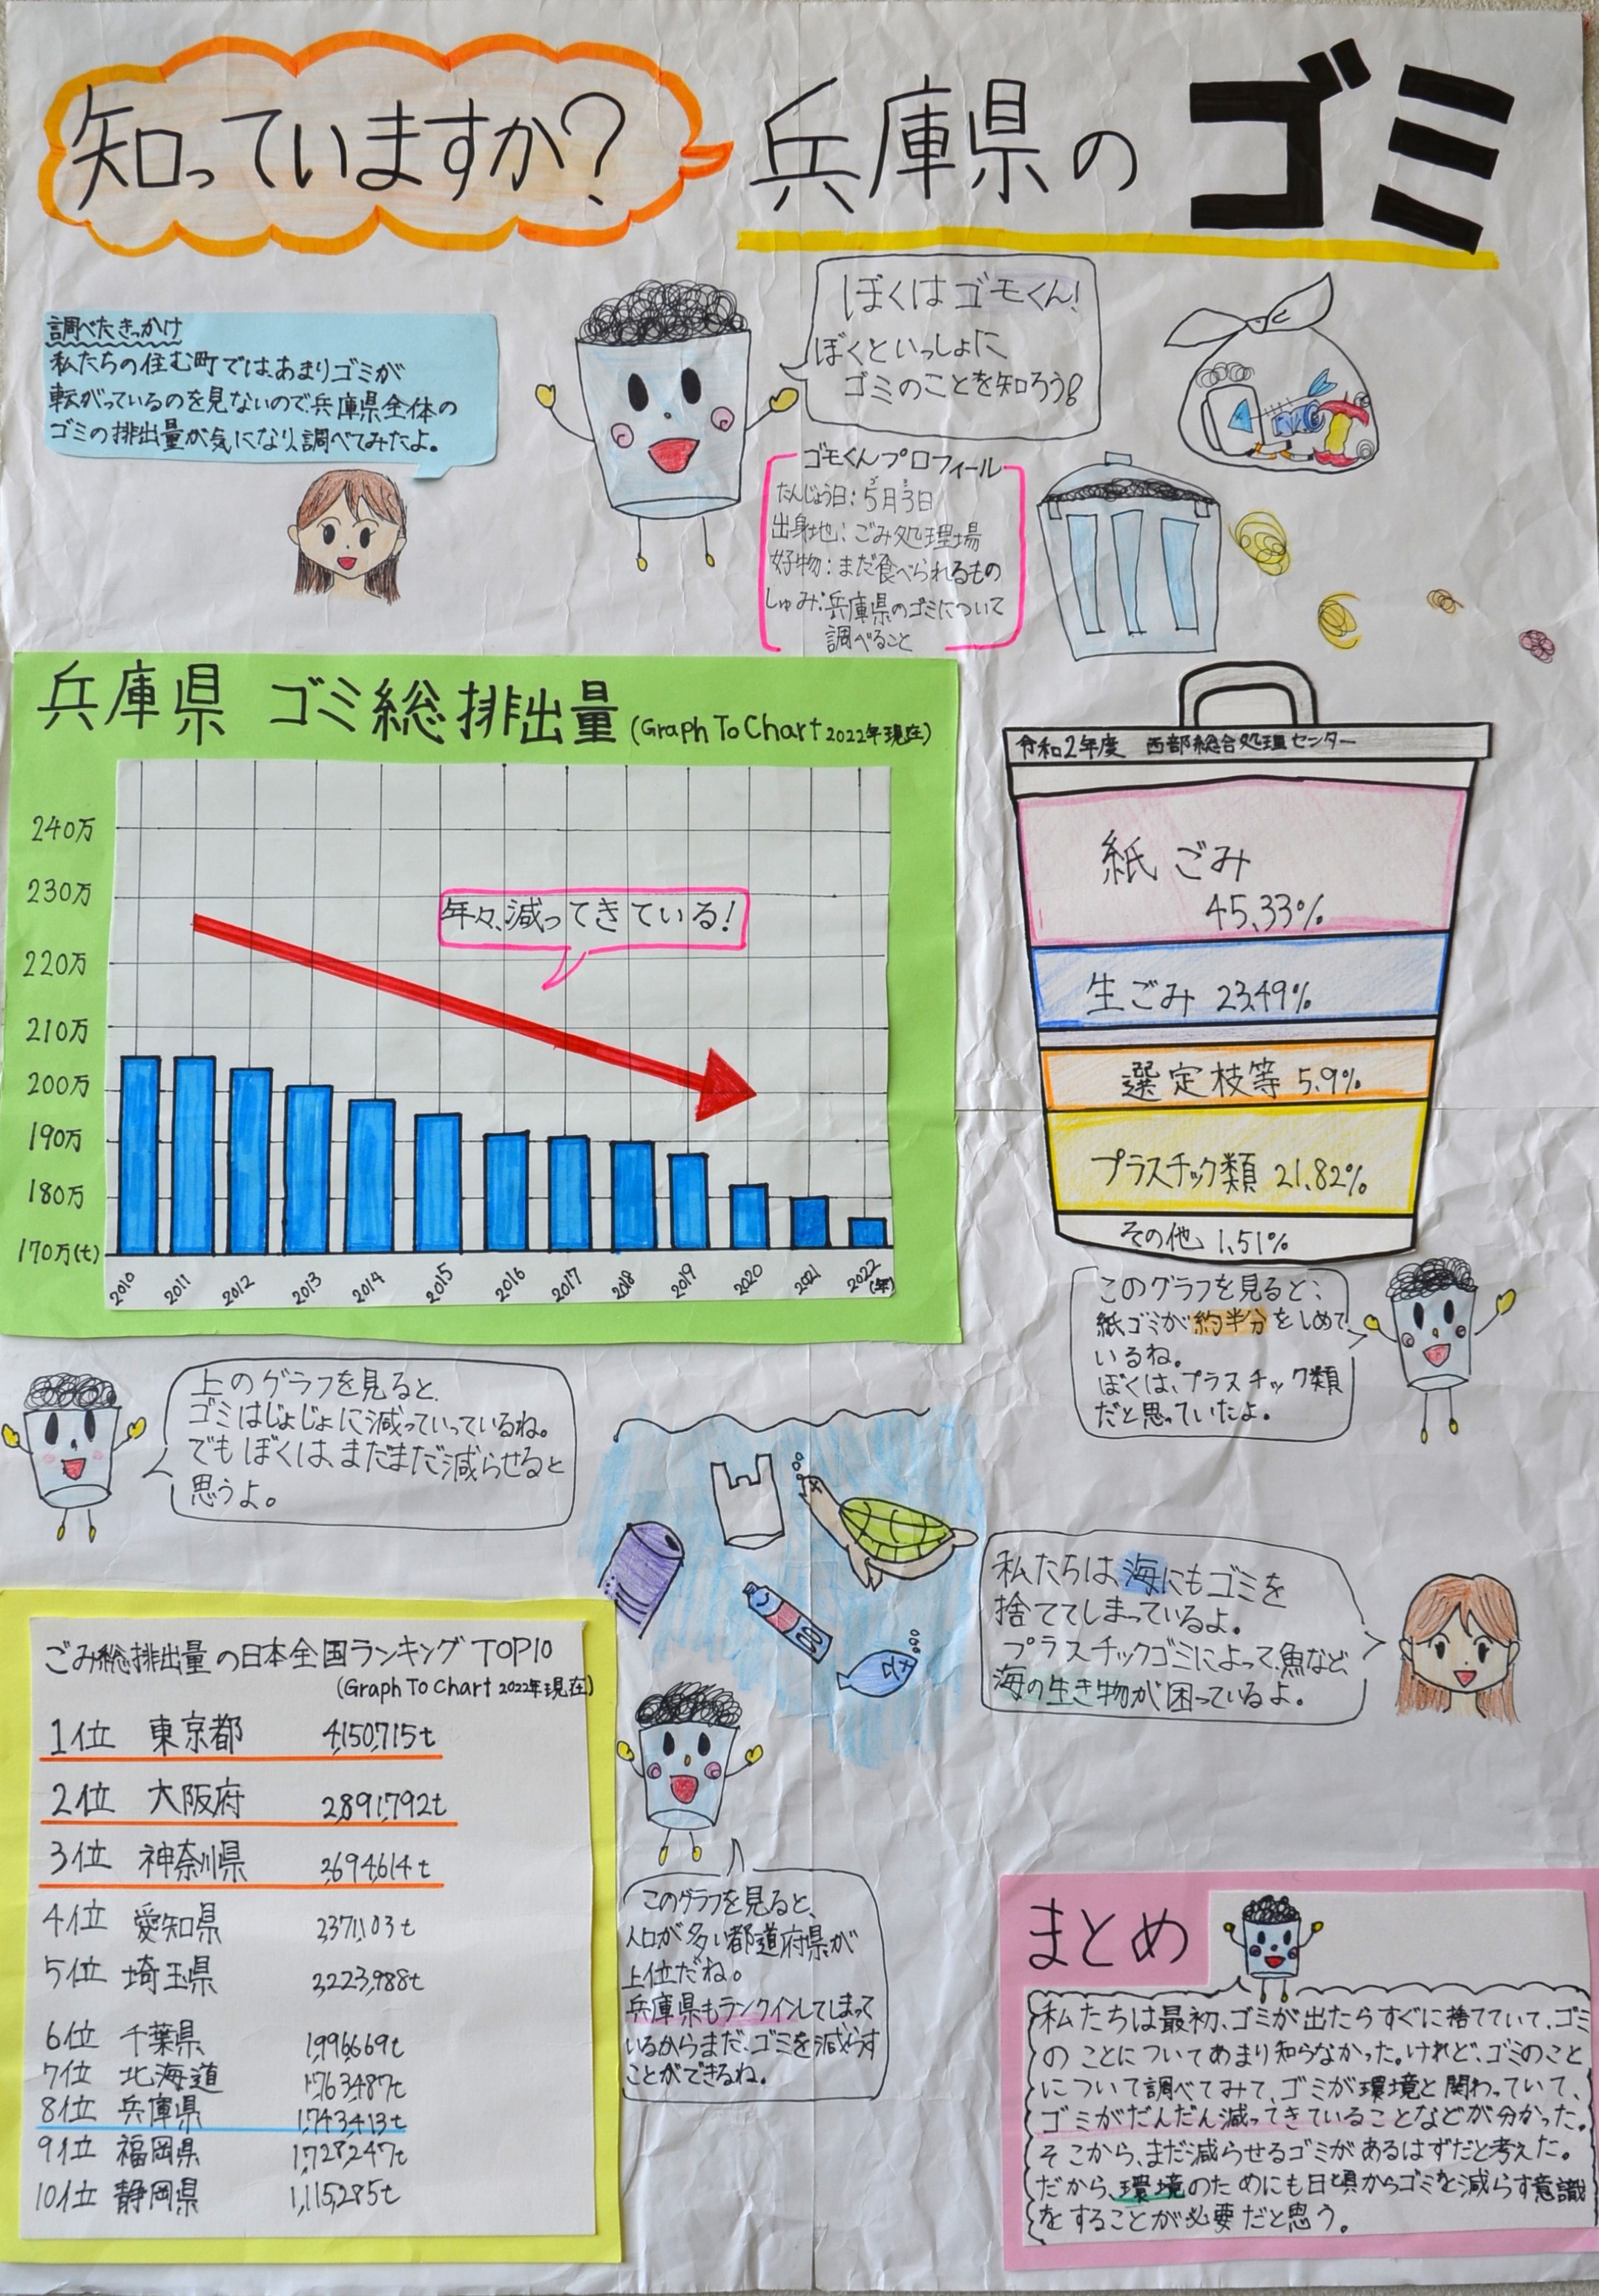 知っていますか?
兵庫県のゴミ
調べたきっかけ
私たちの住む町では、あまりゴミが
転がっているのを見ないので、兵庫県全体の
ゴミの排出量が気になり、調べてみたよ。
ぼくはゴモくん!
ぼくといっしょに
ゴミのことを知ろう!
ゴモくんプロフィール
たんじょう日:5月3日
出身地:ごみ処理場
好物:まだ食べられるもの
しゅみ:兵庫県のゴミについて
調べること
兵庫県 ゴミ総排出量 (Graph To Chart 2022年現在)
240万
230万
220万
210万
200万
190万
180万
170万(t)
年々、減ってきている!
2010 2011 2012 2013 2014 2015 2016 2017 2018 2019 2020 2021 2022(年)
令和2年度 西部総合処理センター
紙ごみ
45.33%
生ごみ 23.49%
選定枝等 5.9%
プラスチック類 21.82%
その他 1.51%
このグラフを見ると、
紙ゴミが約半分をしめて
いるね。
ぼくは、プラスチック類
だと思っていたよ。
上のグラフを見ると、
ゴミはじょじょに減っていっているね。
でもぼくは、まだまだ減らせると
思うよ。
私たちは、海にもゴミを
捨ててしまっているよ。
プラスチックゴミによって、魚など、
海の生き物が困っているよ。
ごみ総排出量の日本全国ランキング TOP10
(Graph To Chart 2022年現在)
1位 東京都 4,150,715t
2位 大阪府 2,891,792t
3位 神奈川県 2,694,614t
4位 愛知県 2,371,103t
5位 埼玉県 2,223,988t
6位 千葉県 1,996,669t
7位 北海道 1,763,487t
8位 兵庫県 1,743,413t
9位 福岡県 1,728,247t
10位 静岡県 1,115,285t
このグラフを見ると、
人口が多い都道府県が
上位だね。
兵庫県もランクインしてしまって
いるからまだ、ゴミを減らす
ことができるね。
まとめ
私たちは最初、ゴミが出たらすぐに捨てていて、ゴミ
のことについてあまり知らなかった。けれど、ゴミのこと
について調べてみて、ゴミが環境と関わっていて、
ゴミがだんだん減ってきていることなどが分かった。
そこから、まだ減らせるゴミがあるはずだと考えた。
だから、環境のためにも日頃からゴミを減らす意識
をすることが必要だと思う。